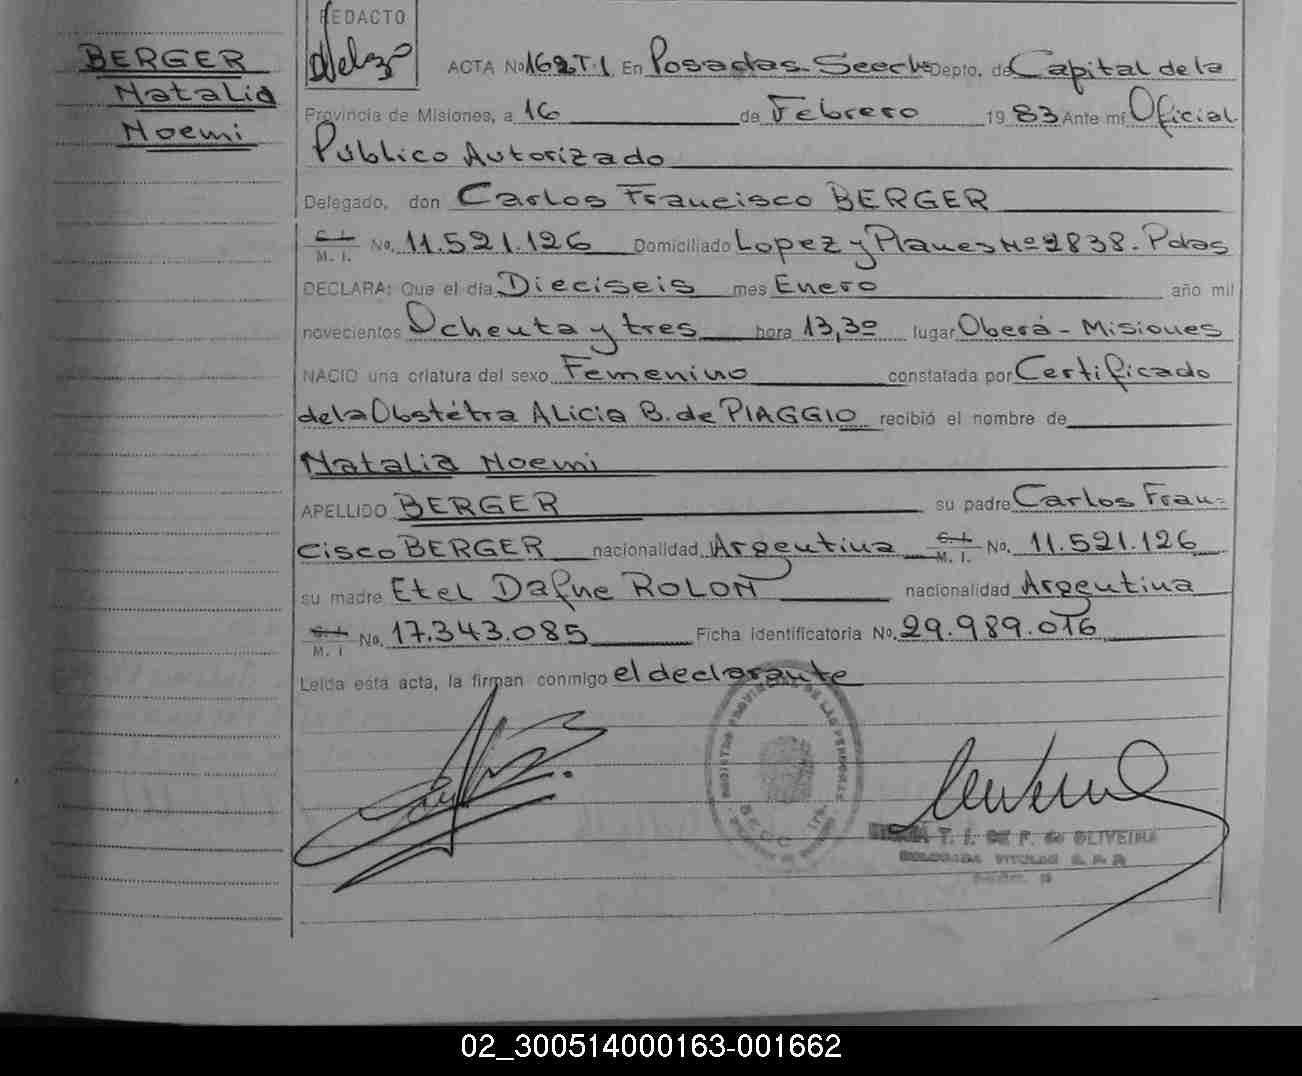 BERGER
Natalia
Noemi
REDACTO
ACTA No 162 T.I En Posadas Secc Depto. de Capital de la
Provincia de Misiones, a 16 de Febrero 1983 Ante mí Oficial
Público Autorizado
Delegado, don Carlos Francisco BERGER
C. I.
M. I. No. 11.521.126 Domiciliado Lopez y Planes Nº 2838. Pdas
DECLARA: Que el día Dieciseis mes Enero año mil
novecientos Ochenta y tres hora 13,30 lugar Oberá - Misiones
NACIO una criatura del sexo Femenino constatada por Certificado
de la Obstétra ALicia B. de PIAGGIO recibió el nombre de
Natalia Noemi
APELLIDO BERGER su padre Carlos Fran-
cisco BERGER nacionalidad Argentina C. I. M. I. No. 11.521.126
su madre Etel Dafne ROLON nacionalidad Argentina
C. I.
M. I No. 17.343.085 Ficha identificatoria No. 29.989.016
Leída esta acta, la firman conmigo el declarante
REGISTRO PROVINCIAL DE LAS PERSONAS
SECC 1
T. I. DE F. de OLIVEIRA
DELEGADA TITULAR R. P. P.
02_300514000163-001662